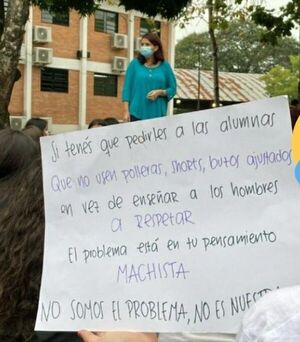 Si tenés que pedirles a las alumnas
Que no usen polleras, shorts, buzos ajustados
en vez de enseñar a los hombres
a RESPETAR
El problema está en tu pensamiento
MACHISTA
NO SOMOS EL PROBLEMA, NO ES NUESTRA